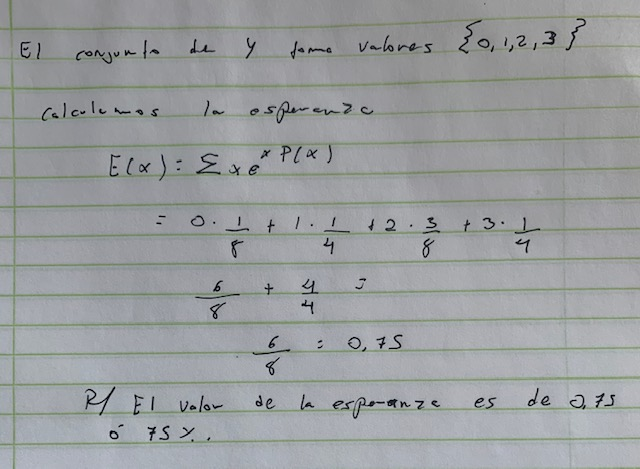 El conjunto de Y toma valores {0, 1, 2, 3}
Calculamos la esperanza
E(x) = Σ x e^x P(x)
= 0 · 1/8 + 1 · 1/4 + 2 · 3/8 + 3 · 1/4
6/8 + 4/4 =
6/8 = 0,75
R/ El valor de la esperanza es de 0,75
ó 75 %.